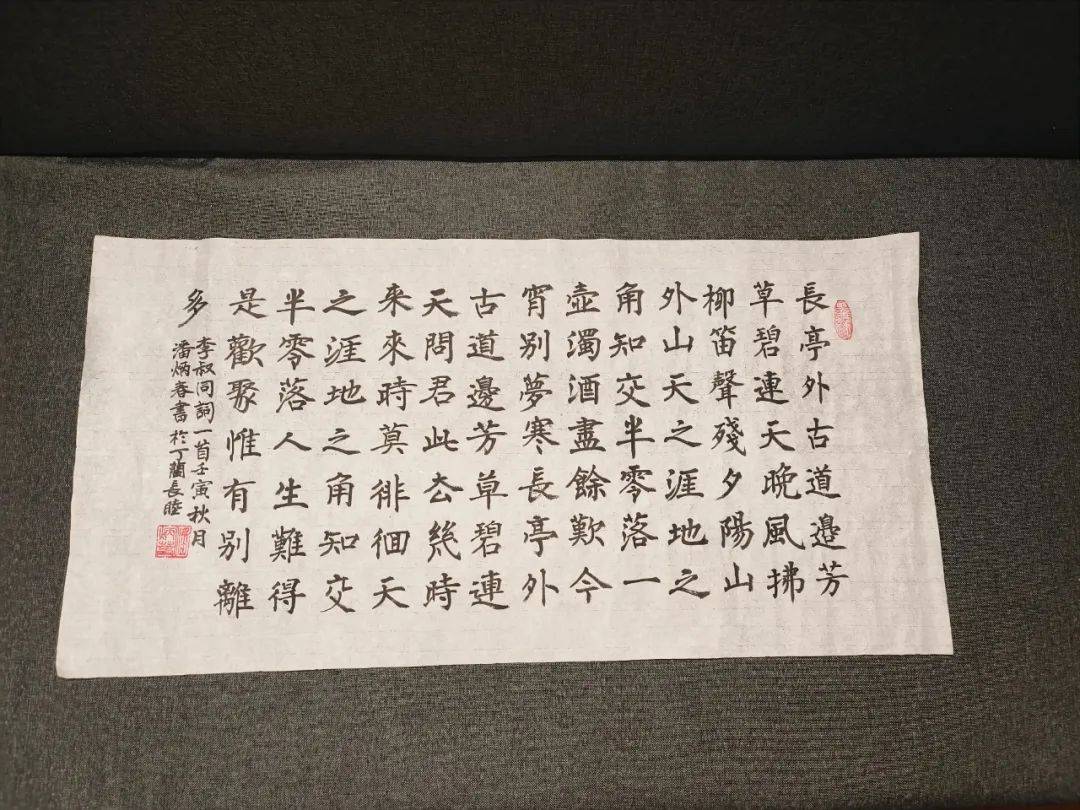 長亭外古道邊芳
草碧連天晚風拂
柳笛聲殘夕陽山
外山天之涯地之
角知交半零落一
壺濁酒盡餘歎今
宵别夢寒長亭外
古道邊芳草碧連
天問君此去幾時
來來時莫徘徊天
之涯地之角知交
半零落人生難得
是歡聚惟有别離
多
李叔同詞一首壬寅秋月
潘炳春書於丁蘭長睦